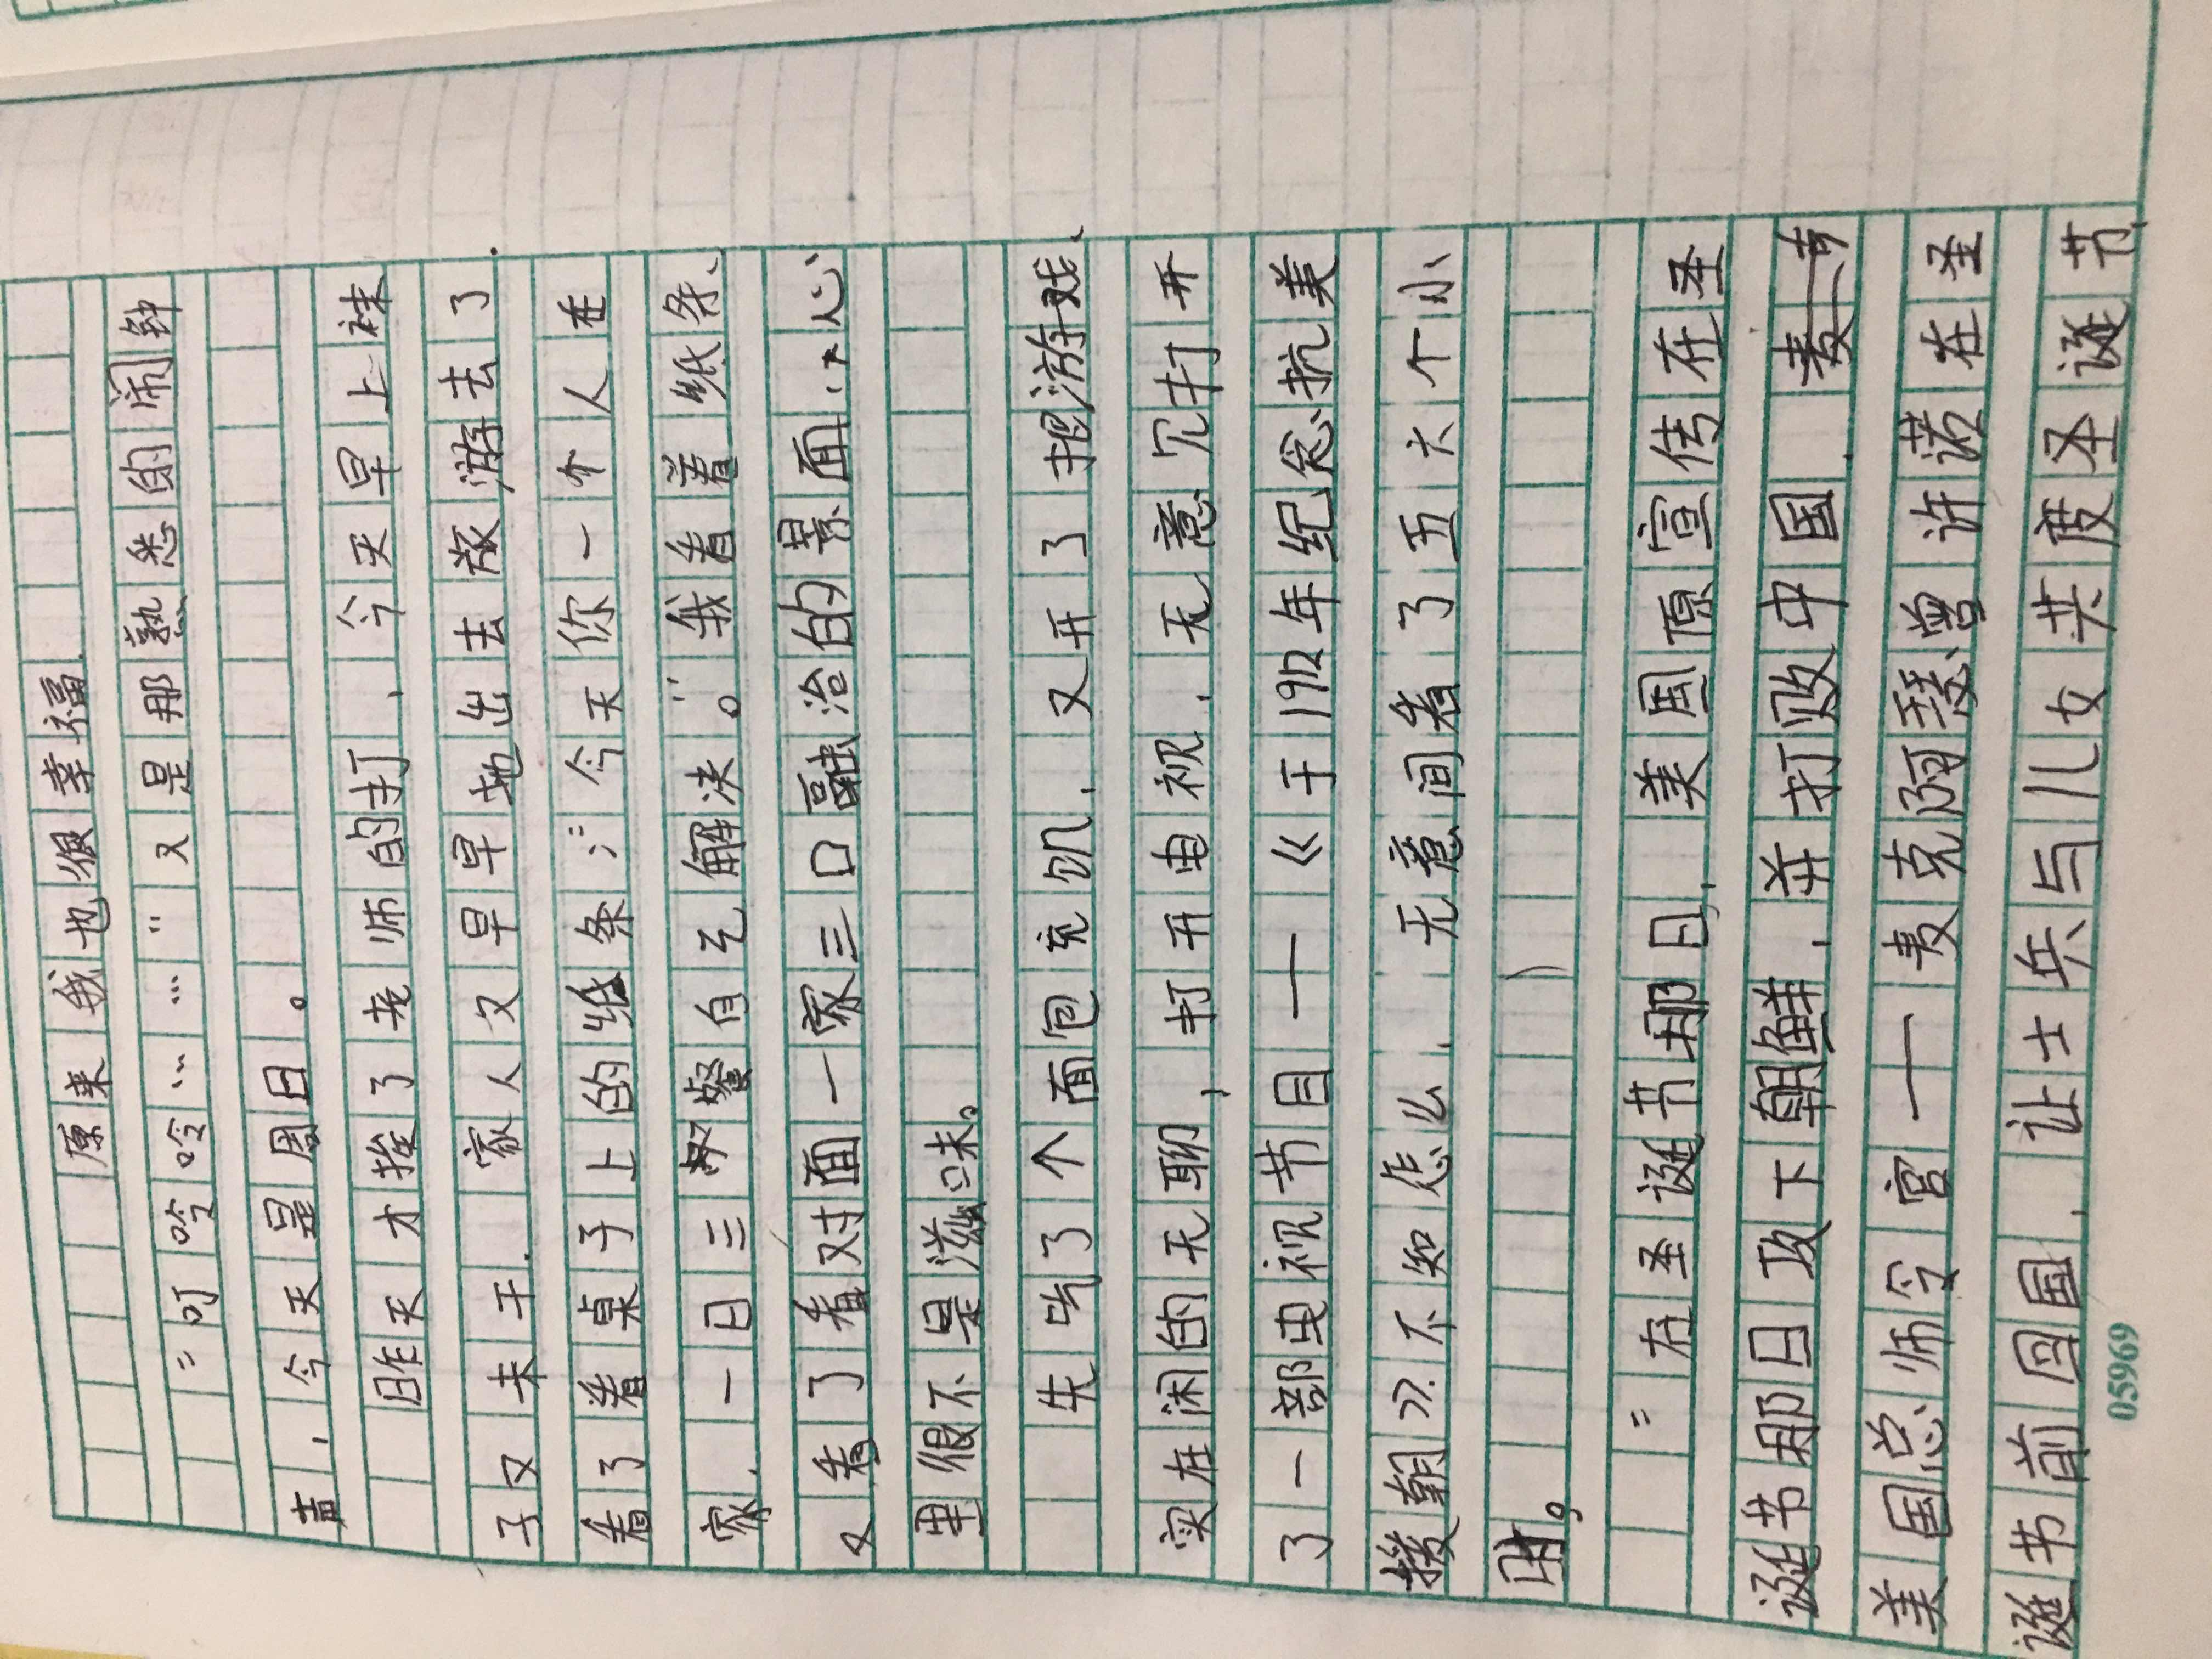 原来我也很幸福
“叮呤呤………”又是那熟悉的闹钟
声，今天是周日。
昨天才挨了老师的打，今天早上袜
子又未干，家人又早早地出去旅游去了，
看了着桌子上的纸条：“今天你一个人在
家，一日三餐自己解决。”我看着纸条、
又看了看对面一家三口融洽的景面……心
里很不是滋味。
先吃了个面包充饥，又开了把游戏、
实在闲的无聊，打开电视，无意见打开
了一部电视节目——《于1912年纪念抗美
援朝》不知怎么，无意间看了五六个小
时。
“在圣诞节那日，美国原宣传在圣
诞节那日攻下朝鲜，并打败中国，
美国总师令官——麦克阿瑟曾许诺在圣
诞节前回国，让士兵与儿女共度圣诞节、
05969